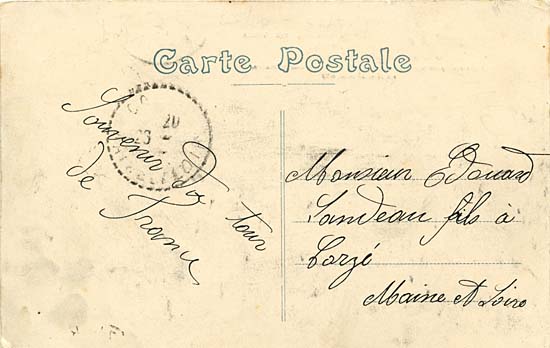 Carte Postale
Souvenir du tour
de France
Monsieur Edouard
Landeau fils à
Corzé
Maine et Loire
20